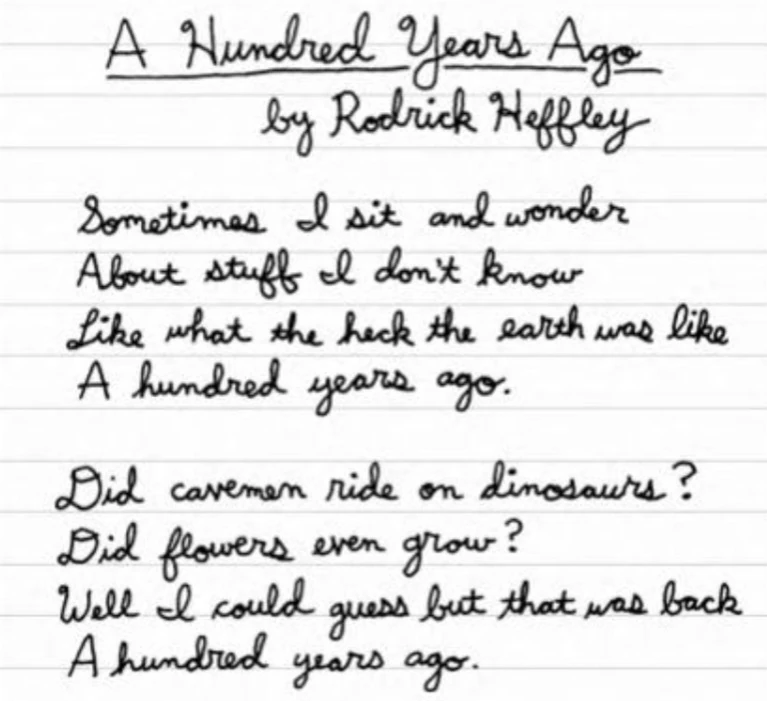 A Hundred Years Ago
by Rodrick Heffley
Sometimes I sit and wonder
About stuff I don't know
Like what the heck the earth was like
A hundred years ago.
Did cavemen ride on dinosaurs?
Did flowers even grow?
Well I could guess but that was back
A hundred years ago.